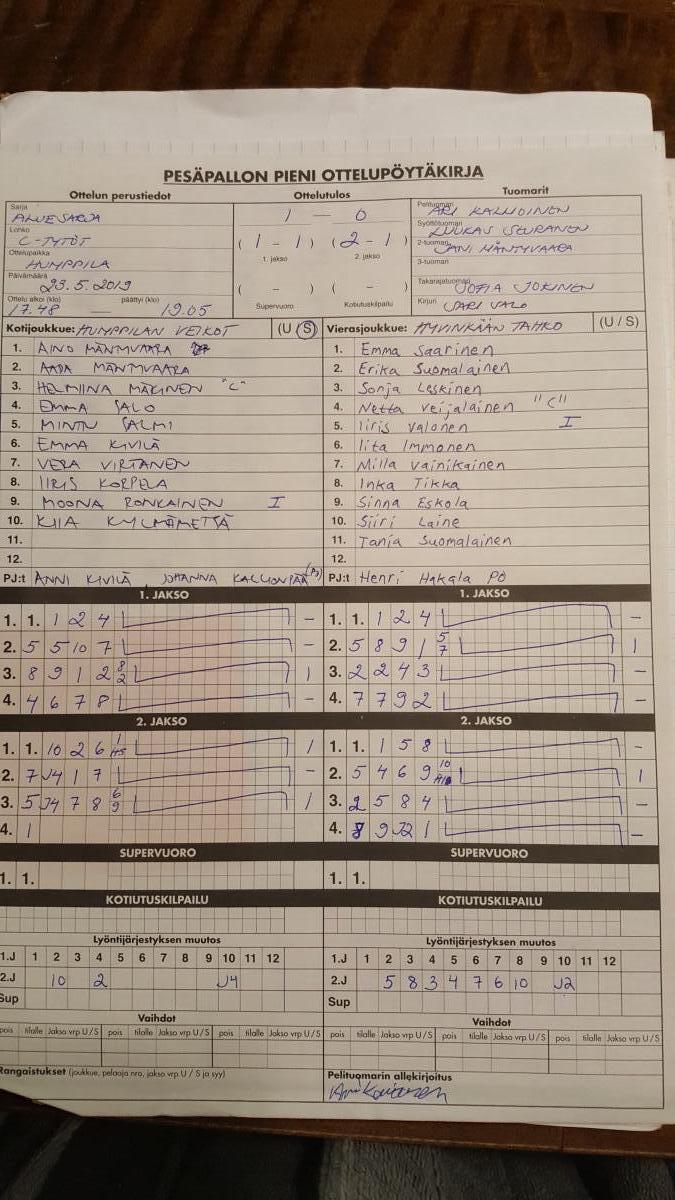 PESÄPALLON PIENI OTTELUPÖYTÄKIRJA
Ottelun perustiedot Ottelutulos Tuomarit
Sarja
ALUESARJA
Lohko
C-TYTÖT
Ottelupaikka
HUMPPILA
Päivämäärä
23.5.2019
Ottelu alkoi (klo) päättyi (klo)
17.48 — 19.05
1 — 0
( 1 - 1 ) ( 2 - 1 )
1. jakso 2. jakso
( - ) ( - )
Supervuoro Kotiutuskilpailu
Pelituomari
ARI
Syöttötuomari
LUUKAS SEURANEN
2-tuomari
JANI MÄNTYVAARA
3-tuomari
Takarajatuomari
SOFIA JOKINEN
Kirjuri
SARI SALO
Kotijoukkue: HUMPPILAN VEIKOT (U / S)
1. AINO MÄNTYVAARA
2. AADA MÄNTYVAARA
3. HELMIINA MÄKINEN "C"
4. EMMA SALO
5. MINTU SALMI
6. EMMA KIVILÄ
7. VERA VIRTANEN
8. IIRIS KORPELA
9. MOONA RONKAINEN I
10. KIIA KYLMÄMETTÄ
11.
12.
PJ:t ANNI KIVILÄ, JOHANNA KALLIONPÄÄ
Vierasjoukkue: HYVINKÄÄN TAHKO (U / S)
1. Emma Saarinen
2. Erika Suomalainen
3. Sonja Leskinen
4. Netta Veijalainen "C"
5. Iiris Valonen I
6. Iita Immonen
7. Milla Vainikainen
8. Inka Tikka
9. Sinna Eskola
10. Siiri Laine
11. Tania Suomalainen
12.
PJ:t Henri Hakala PO
1. JAKSO
1. 1. 1 2 4 –
2. 5 5 10 7 –
3. 8 9 1 2 8 2 1
4. 4 6 7 8 –
2. JAKSO
1. 1. 10 2 6 1 1
2. 7 J4 1 7 –
3. 5 J4 7 8 6 9 1
4. 1
SUPERVUORO
1. 1.
KOTIUTUSKILPAILU
Lyöntijärjestyksen muutos
1.J 1 2 3 4 5 6 7 8 9 10 11 12
2.J 10 2 J4
Sup
Vaihdot
pois tilalle Jakso vrp U / S pois tilalle Jakso vrp U / S
Rangaistukset (joukkue, pelaaja nro, jakso vrp U / S ja syy)
1. JAKSO
1. 1. 1 2 4 –
2. 5 8 9 1 5 7 1
3. 2 2 4 3 –
4. 7 7 9 2 –
2. JAKSO
1. 1. 1 5 8 –
2. 5 4 6 9 10 1
3. 2 5 8 4 –
4. 8 9 J2 1 –
SUPERVUORO
1. 1.
KOTIUTUSKILPAILU
Lyöntijärjestyksen muutos
1.J 1 2 3 4 5 6 7 8 9 10 11 12
2.J 5 8 3 4 7 6 10 J2
Sup
Vaihdot
pois tilalle Jakso vrp U / S pois tilalle Jakso vrp U / S
Pelituomarin allekirjoitus